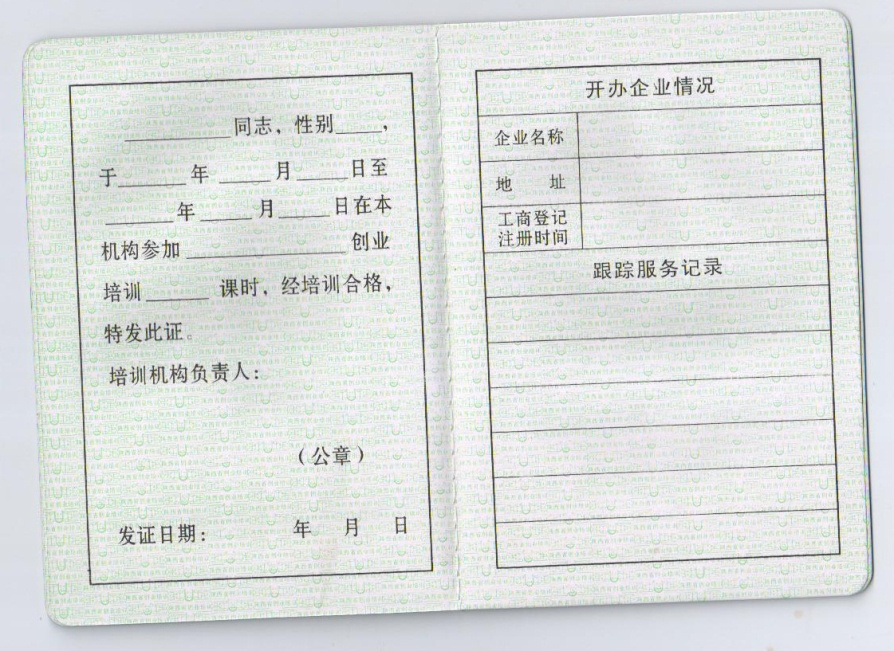 __________同志，性别____，
于______年 _____月_____日至
______年_____月_____日在本
机构参加______________创业
培训______ 课时，经培训合格，
特发此证。
培训机构负责人：
（公章）
发证日期： 年 月 日
开办企业情况
企业名称
地 址
工商登记
注册时间
跟踪服务记录